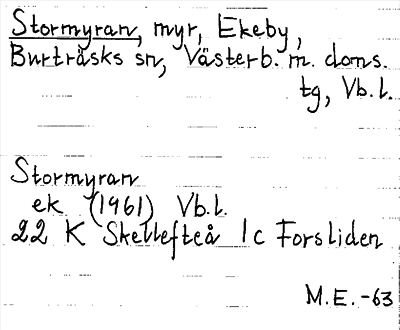 Stormyran, myr, Ekeby,
Burträsks sn, Västerb. m. doms.
tg, Vb.l.
Stormyran
ek (1961) Vb.l.
22 K Skellefteå 1c Forsliden
M.E. -63